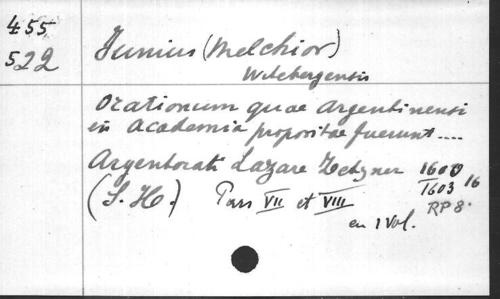 455
522
Junius (Melchior)
Witebergensis
Orationum quae Argentinensi
in Academia propositae fuerunt ....
Argentorati Lazare Zetzner 1600
1603 16
(S. H.) Pars VII et VIII RP 8.
en 1 vol.